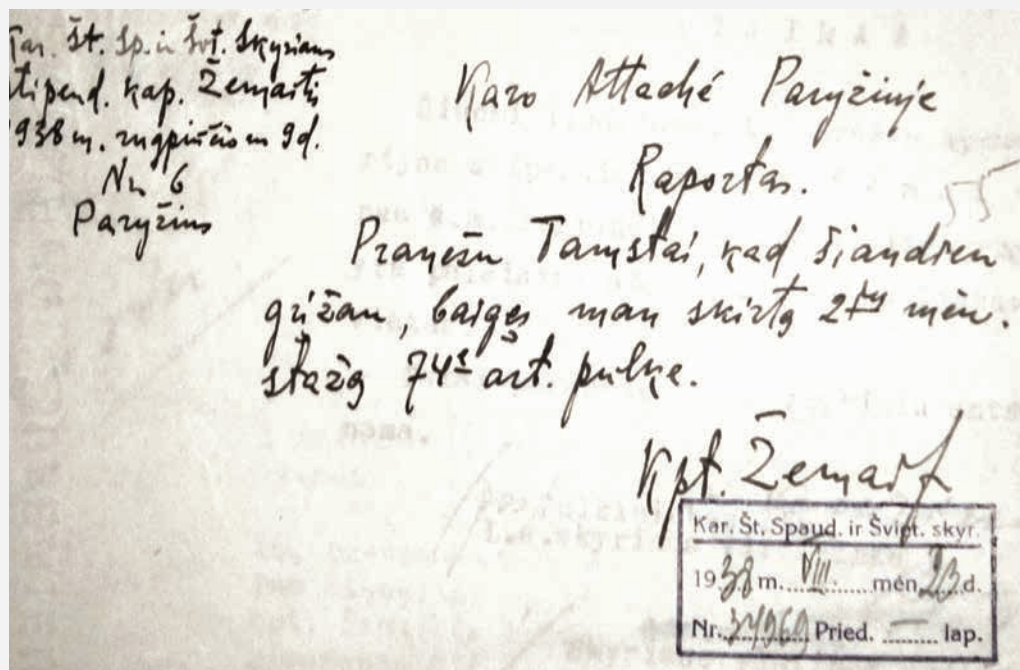 Kar. Št. Sp. ir Švt. Skyriaus
stipend. kap. Žemaitis
1938 m. rugpiučio m 9d.
Nr 6
Paryžius
Karo Attaché Paryžiuje
Raportas.
55
Pranešu Tamstai, kad šiandien
grįžau, baigęs man skirtą 2jų mėn.
stažą 74s art. pulke.
Kpt. Žemait
Kar. Št. Spaud. ir Švipt. skyr.
1938 m. VIII mėn. 23 d.
Nr. Pried. — lap.